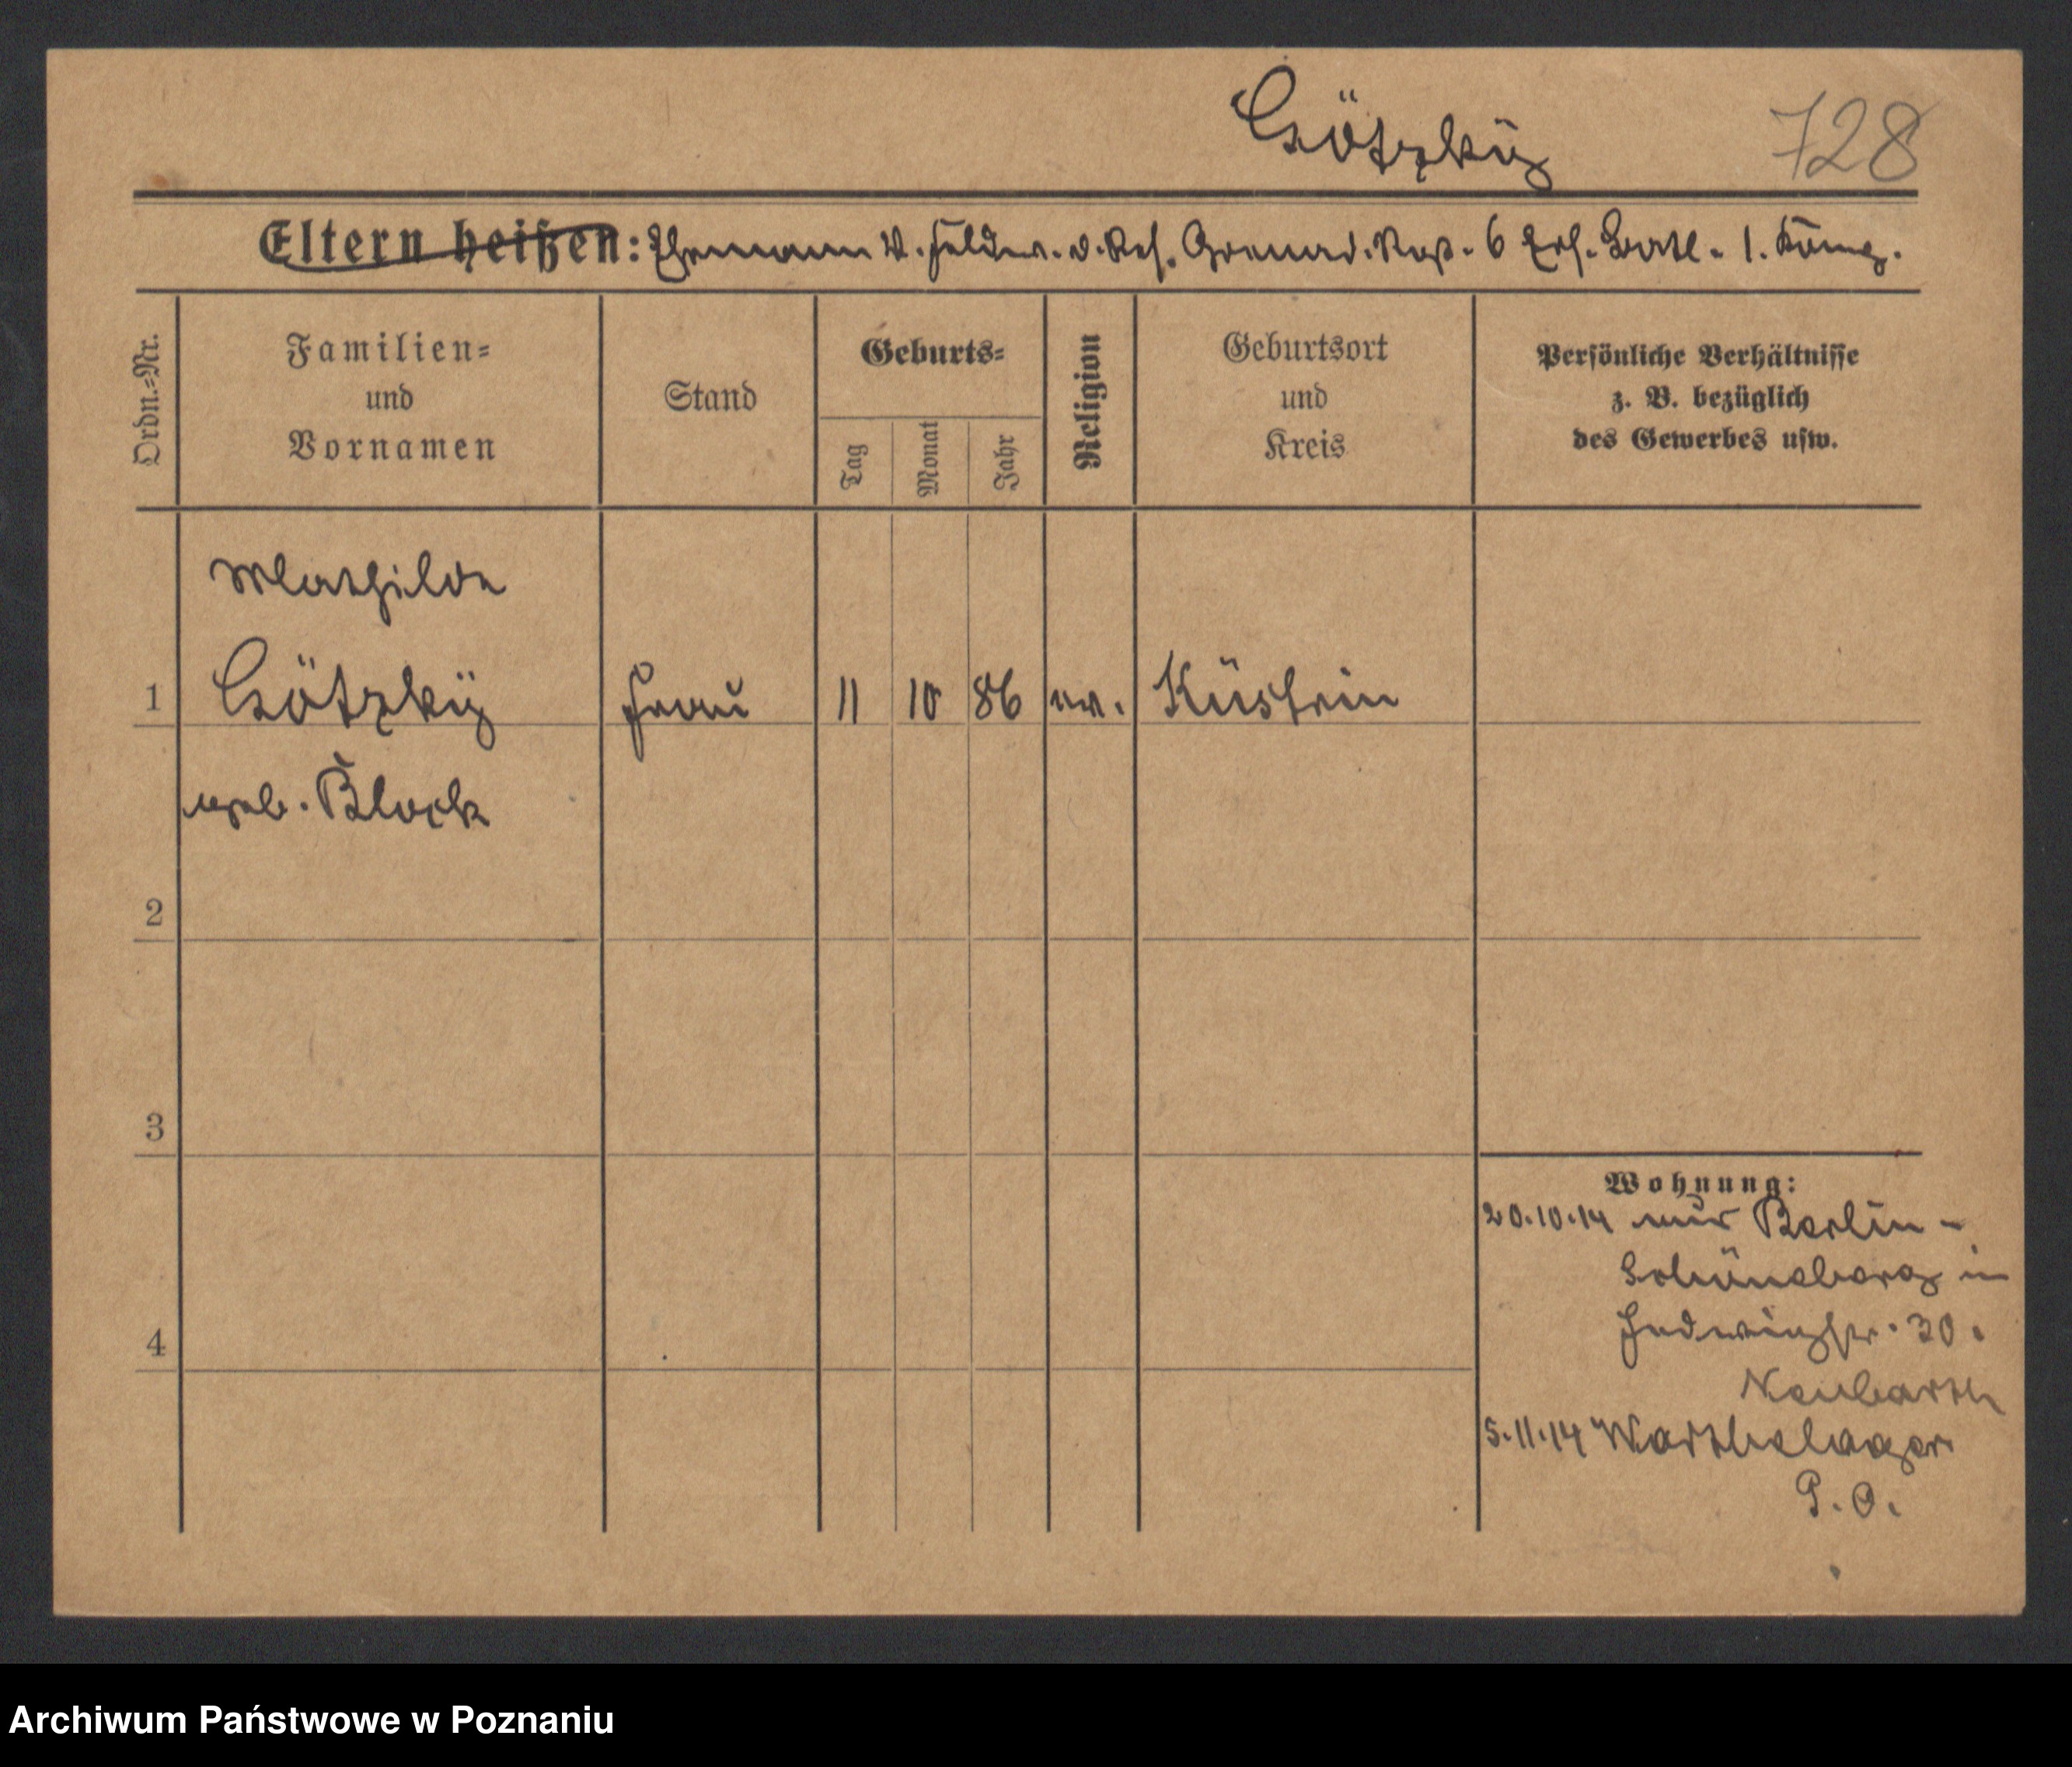 Götzky 728
Eltern heißen: Ehemann V. Feldw. d. Res. Grenad. Reg. 6 Ers. Batl. 1. Komp.
Ordn.-Nr.
Familien-
und
Vornamen
Stand
Geburts-
Tag
Monat
Jahr
Religion
Geburtsort
und
Kreis
Persönliche Verhältnisse
z. B. bezüglich
des Gewerbes usw.
Mathilde
1 Götzky Frau 11 10 86 ev. Küstrin
geb. Block
2
3
4
Wohnung:
20.10.14 Berlin-
Schöneberg in
Hedwigstr. 30.
5.11.14 Warthelager
P. O.
Archiwum Państwowe w Poznaniu